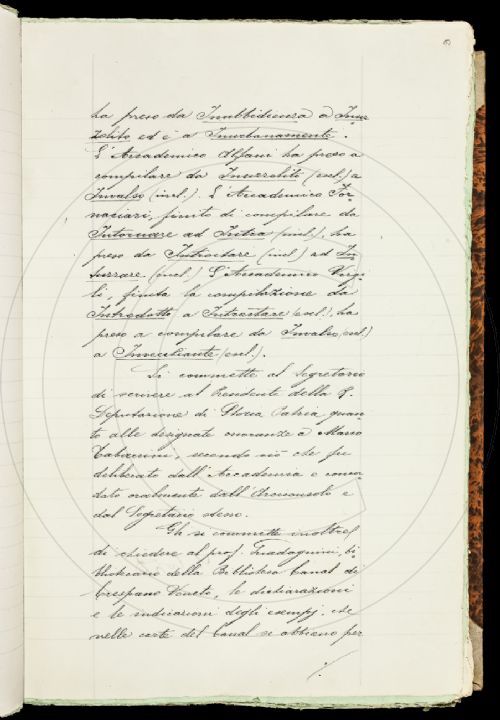 ha preso da Inubbidienza a Inur
zolito ed è a Inurbanamente.
L'Accademico Alfani ha preso a
compilare da Inuzzoliti (escl.) a
Invalso (incl.). L'Accademico For-
naciari, finito di compilare da
Intornare ad Intra (incl.), ha
preso da Introttare (incl.) ad In-
furrare (incl.) L'Accademico Virgi-
li, finita la compilazione da
Introdotto a Introttare (escl.), ha
preso a compilare da Invalso (escl.)
a Invecchiante (escl.).
Si commette al Segretario
di scrivere al Presidente della R.
Deputazione di Storia Patria quan-
to alle designate onoranze a Marco
Tabarrini, secondo ciò che fu
deliberato dall'Accademia e concor-
dato oralmente dall'Arciconsolo e
dal Segretario stesso.
Gli si commette inoltre
di chiedere al prof. Guadagnini, bi-
bliotecario della Biblioteca Canal di
Crespano Veneto, le dichiarazioni
e le indicazioni degli esempj che
nelle carte del Canal si abbiano per